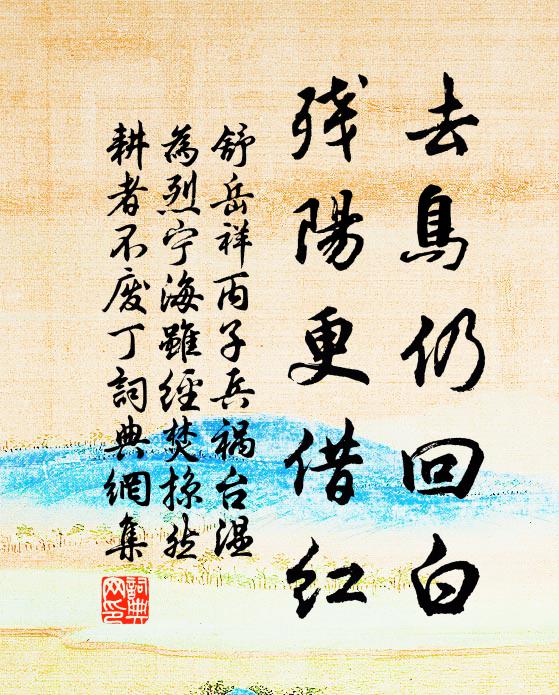 去鳥仍回白
殘陽更借紅
舒岳祥丙子兵禍台溫
為烈宁海雖經焚掠然
耕者不廢丁詞典網集
詞典網印